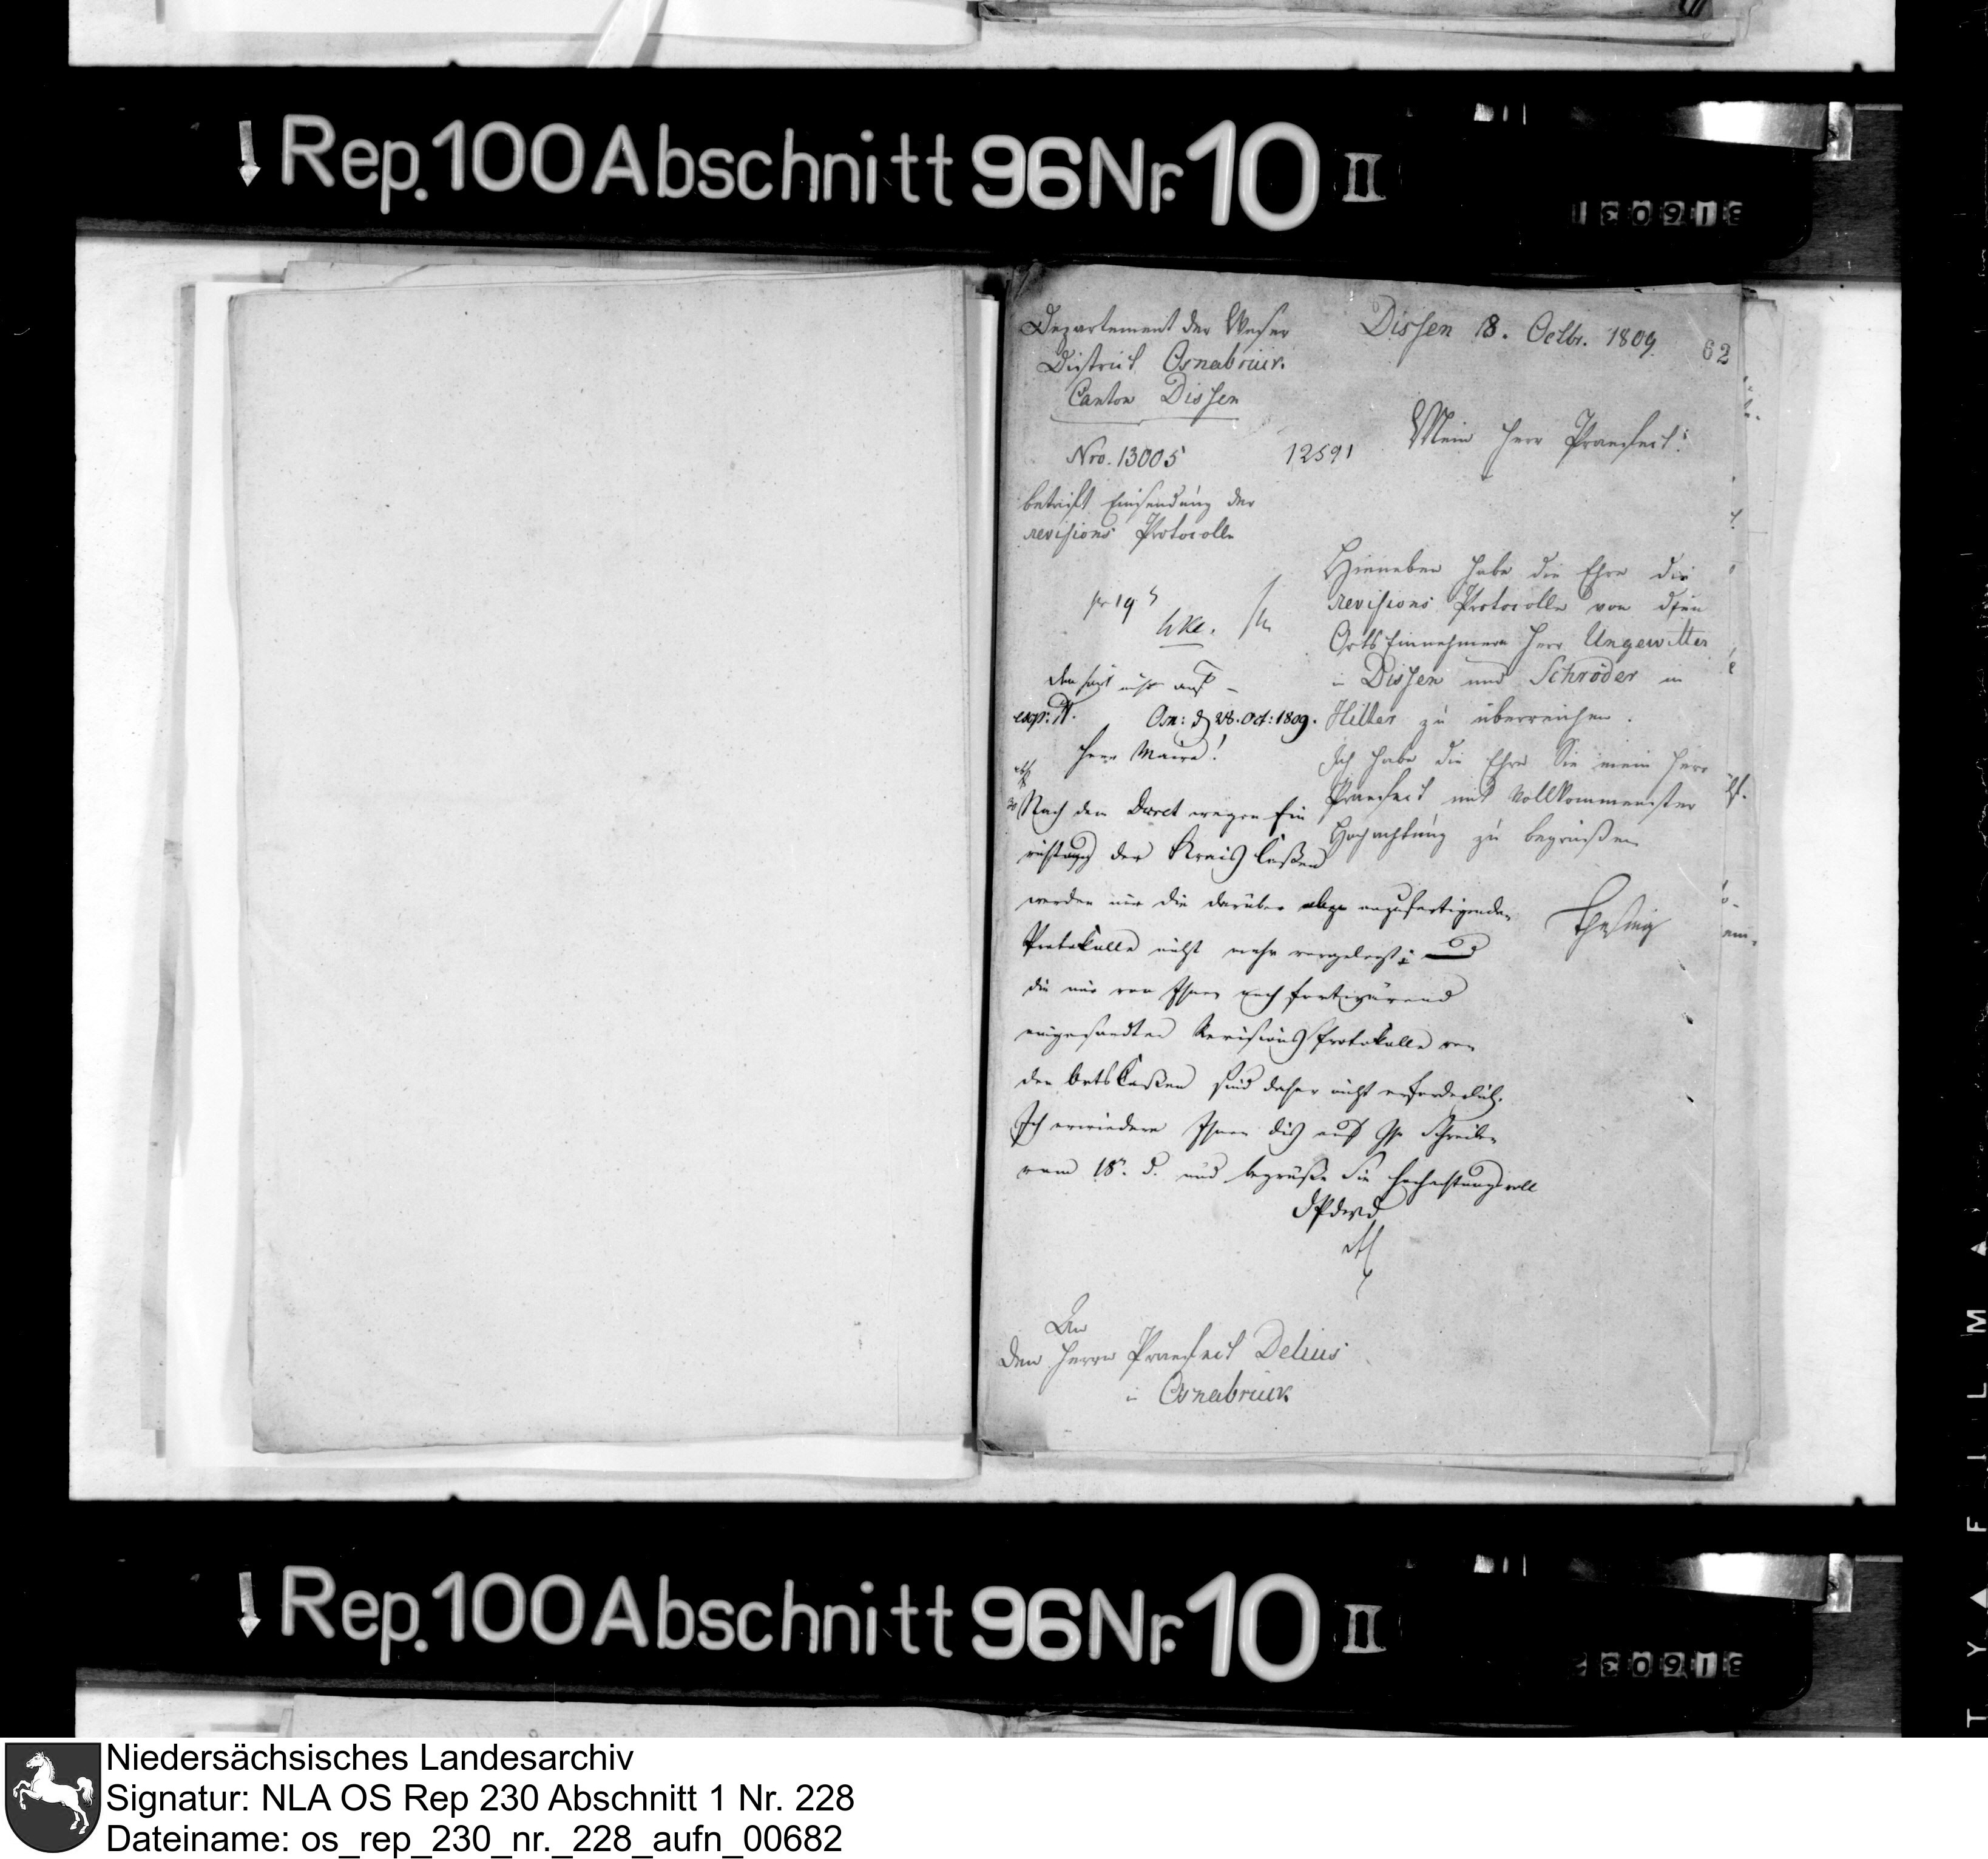 Rep. 100 Abschnitt 96 Nr. 10 II
Departement der Weser
District Osnabrück.
Canton Dissen
Dissen 18. Octbr. 1809.
62
Nro. 13005
12591
Mein Herr Praefect!
betrift Einsendung der
revisions Protocolle
Hieneben habe die Ehre die
revisions Protocolle von den
Orts Einnehmern Herr Ungewitter
in Dissen und Schröder in
Hilter zu überreichen.
Ich habe die Ehre Sie mein Herr
Praefect mit vollkommenster
Hochachtung zu begrüßen
pr 19
exp:
Osn: d 28. Oct: 1809.
Herr Maire!
Nach dem Decret wegen Ein
richtung der Kreis Caßen
werden mir die darüber anzufertigenden
Protokolle nicht mehr vorgelegt;
die mir von Ihnen noch fortwärend
eingesandten Revisions Protokolle von
den Orts Caßen sind daher nicht erforderlich.
Ich erwiedere Ihnen dis auf Ihr Schreiben
vom 18. d. und begrüße Sie hochachtungsvoll
DPdWD
An
den Herrn Praefect Delius
in Osnabrück
Rep. 100 Abschnitt 96 Nr. 10 II
FILM
Niedersächsisches Landesarchiv
Signatur: NLA OS Rep 230 Abschnitt 1 Nr. 228
Dateiname: os_rep_230_nr._228_aufn_00682